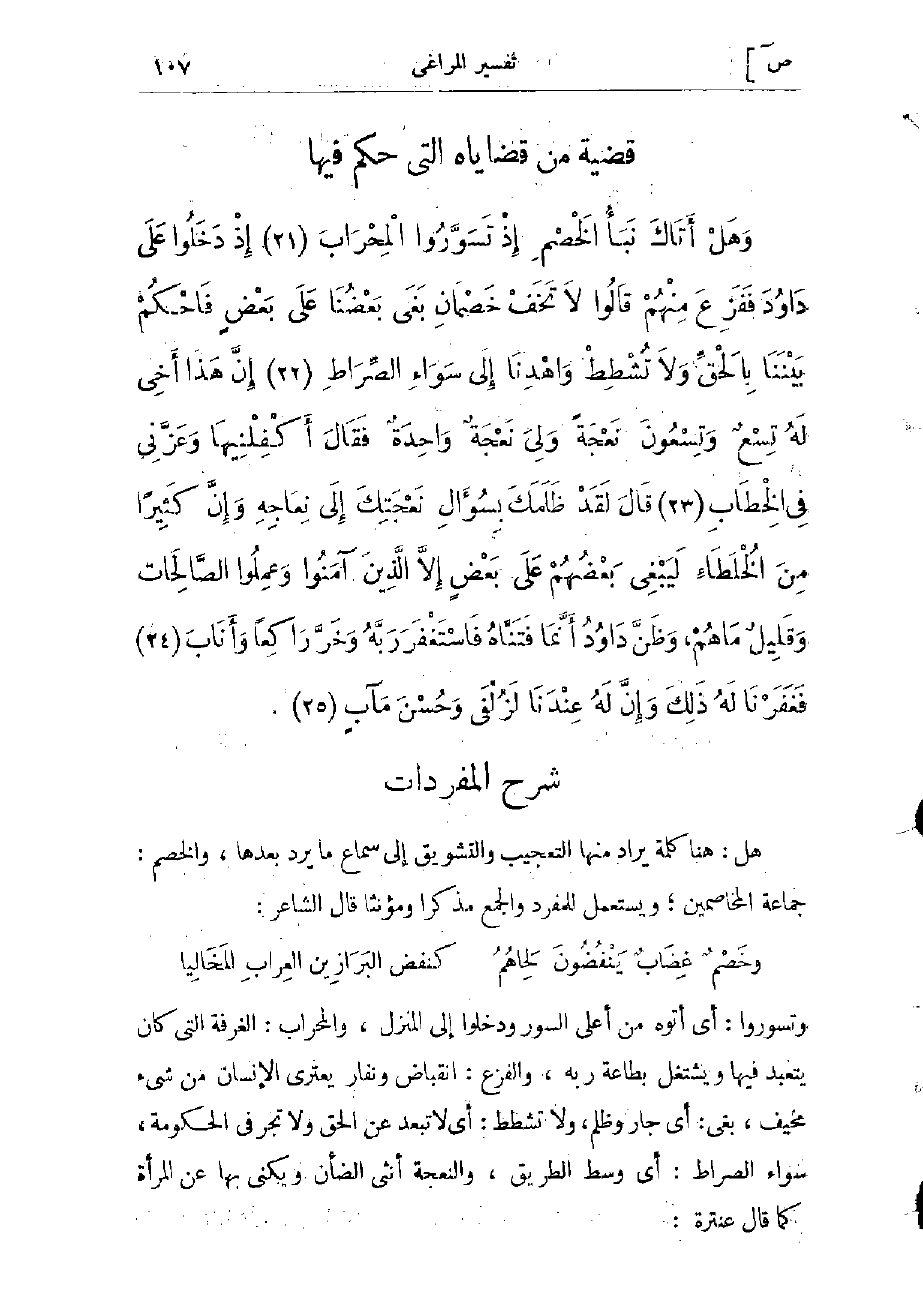 ص] تفسير المراغى ١٠٧
قضية من قضاياه التى حكم فيها
وَهَلْ أَتَاكَ نَبَأُ الْخَصْمِ إِذْ تَسَوَّرُوا الْمِحْرَابَ (٢١) إِذْ دَخَلُوا عَلَى
دَاوُدَ فَفَزِعَ مِنْهُمْ قَالُوا لاَ تَخَفْ خَصْمَانِ بَغَى بَعْضُنَا عَلَى بَعْضٍ فَاحْكُمْ
بَيْنَنَا بِالْحَقِّ وَلاَ تُشْطِطْ وَاهْدِنَا إِلَى سَوَاءِ الصِّرَاطِ (٢٢) إِنَّ هَذَا أَخِى
لَهُ تِسْعٌ وَتِسْعُونَ نَعْجَةً وَلِىَ نَعْجَةٌ وَاحِدَةٌ فَقَالَ أَكْفِلْنِيهَا وَعَزَّنِى
فِى الْخِطَابِ (٢٣) قَالَ لَقَدْ ظَلَمَكَ بِسُؤَالِ نَعْجَتِكَ إِلَى نِعَاجِهِ وَإِنَّ كَثِيرًا
مِنَ الْخُلَطَاءِ لَيَبْغِى بَعْضُهُمْ عَلَى بَعْضٍ إِلاَّ الَّذِينَ آمَنُوا وَعَمِلُوا الصَّالِحَاتِ
وَقَلِيلٌ مَاهُمْ، وَظَنَّ دَاوُدُ أَنَّمَا فَتَنَّاهُ فَاسْتَغْفَرَ رَبَّهُ وَخَرَّ رَاكِعاً وَأَنَابَ (٢٤)
فَغَفَرْنَا لَهُ ذَلِكَ وَإِنَّ لَهُ عِنْدَنَا لَزُلْفَى وَحُسْنَ مَآبٍ (٢٥) .
شرح المفردات
هل : هنا كلمة يراد منها التعجيب والتشويق إلى سماع ما يرد بعدها ، والخصم :
جماعة المخاصمين ؛ ويستعمل للمفرد والجمع مذكرا ومؤنثا قال الشاعر :
وخَصْمٌ غِضَابٌ يَنْفُضُونَ لِحَاهُمُ كنفض البَرَازِين العِراب المَخَاليا
وتسوروا : أى أتوه من أعلى السور ودخلوا إلى المنزل ، والمحراب : الغرفة التى كان
يتعبد فيها ويشتغل بطاعة ربه ، والفزع : انقباض ونفار يعترى الإنسان من شىء
مخيف ، بغى : أى جار وظلم، ولا تشطط : أى لا تبعد عن الحق ولا تجر فى الحكومة ،
سواء الصراط : أى وسط الطريق ، والنعجة أنثى الضأن ويكنى بها عن المرأة
كما قال عنترة :